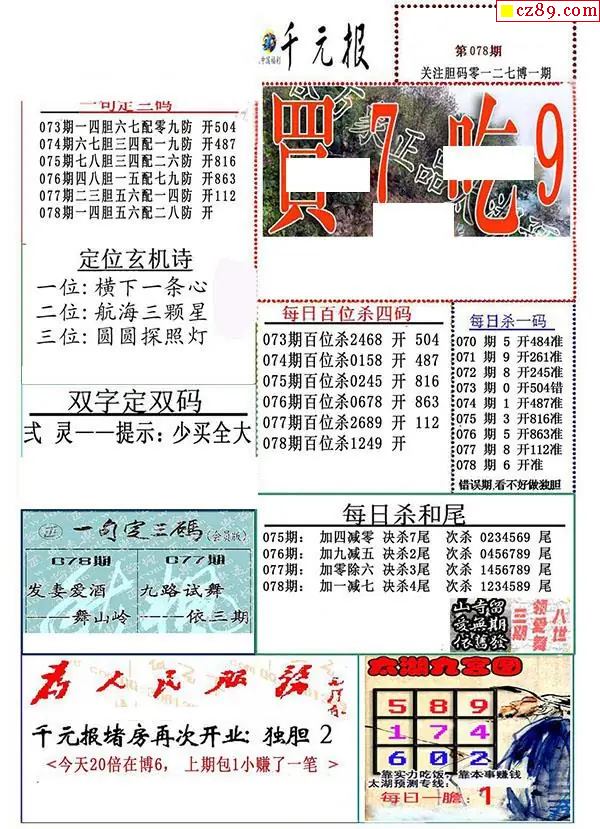 cz89.com
千元报
第078期
关注胆码零一二七博一期
買 7 吃 9
一句定三码
073期一四胆六七配零九防 开504
074期六七胆三四配一九防 开487
075期七八胆三四配二六防 开816
076期四八胆一五配七九防 开863
077期二三胆五六配一四防 开112
078期一四胆五六配二八防 开
定位玄机诗
一位: 横下一条心
二位: 航海三颗星
三位: 圆圆探照灯
每日百位杀四码
073期百位杀2468 开 504
074期百位杀0158 开 487
075期百位杀0245 开 816
076期百位杀0678 开 863
077期百位杀2689 开 112
078期百位杀1249 开
每日杀一码
070 期 5 开484准
071 期 9 开261准
072 期 8 开245准
073 期 0 开504错
074 期 1 开487准
075 期 3 开816准
076 期 5 开863准
077 期 8 开112准
078 期 6 开准
错误期,看不好做独胆
双字定双码
弍 灵——提示: 少买全大
每日杀和尾
075期: 加四减零 决杀7尾 次杀 0234569 尾
076期: 加九减五 决杀2尾 次杀 0456789 尾
077期: 加零除六 决杀3尾 次杀 1456789 尾
078期: 加一减七 决杀4尾 次杀 1234589 尾
一句定三碼(会员版)
078期 077期
发妻爱酒 九路试舞
——舞山岭 ——依三期
山奇留
爱無期
依舊發
八世
领爱舞
三期
为人民服务
千元报堵房再次开业: 独胆 2
<今天20倍在博6, 上期包1小赚了一笔 >
太湖九宫图
5 8 9
1 7 4
6 0 2
靠实力吃饭,靠本事赚钱
太湖预测专线:
每日一胆: 1